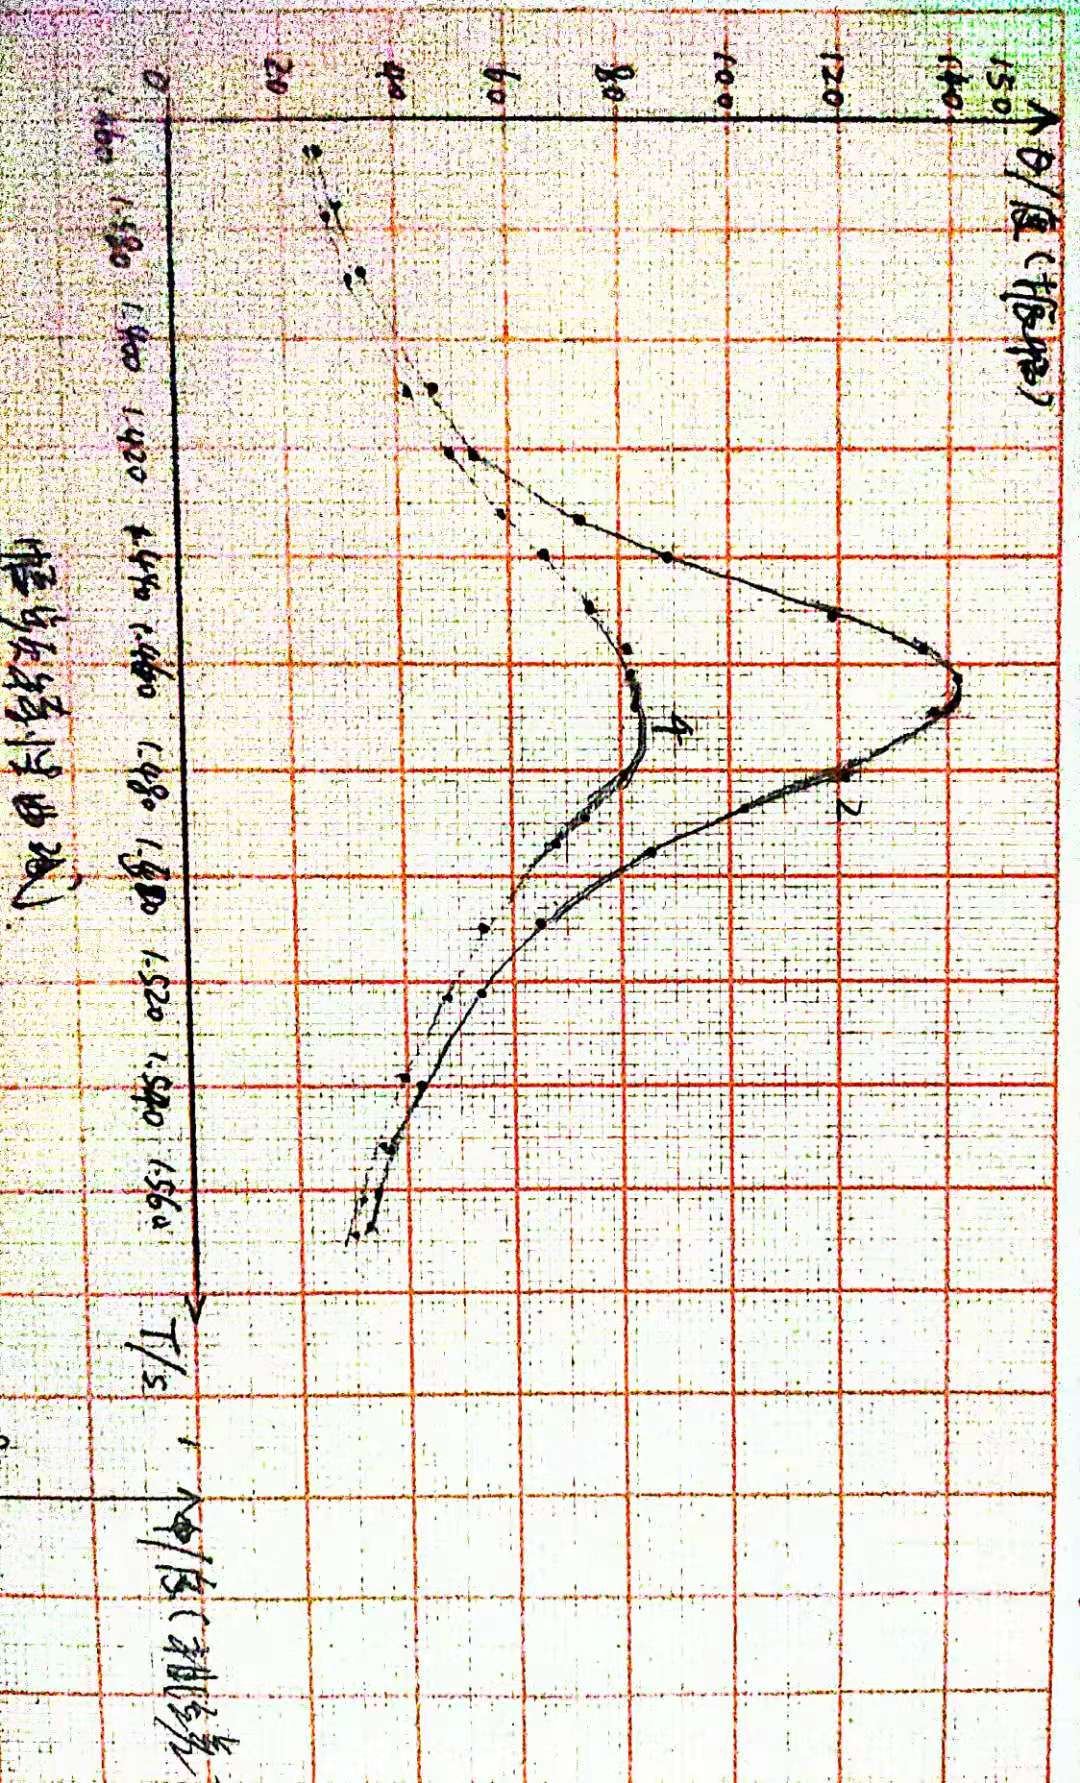 θ/度(振幅)
150
140
120
100
80
60
40
20
0
2
4
1.480 1.400 1.420 1.440 1.460 1.480 1.480 1.520 1.540 1.560
T/s
幅频特性曲线
φ/度(相位差